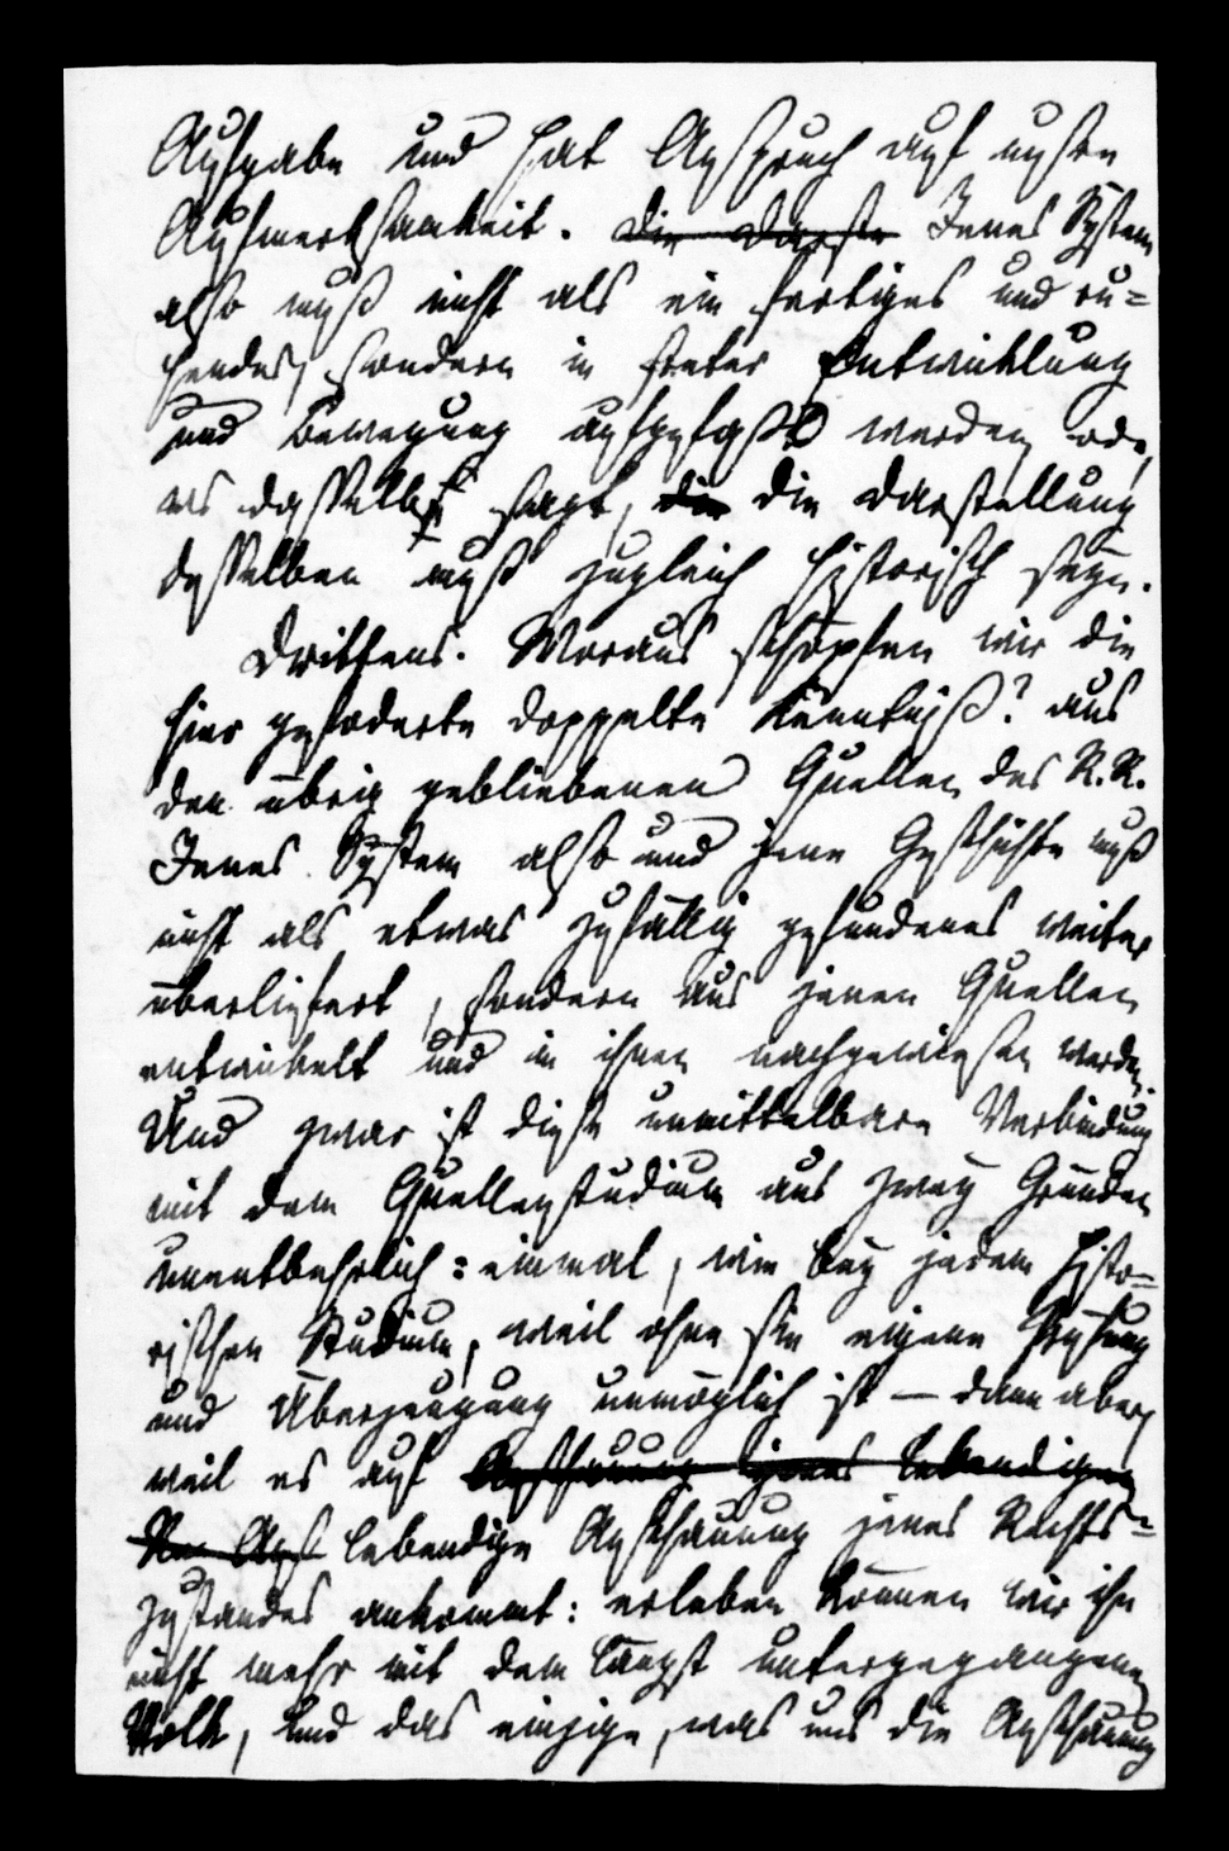 Aufgabe und hat Anspruch auf unsre
Aufmerksamkeit. Die Darste Jenes System
also muß nicht als ein fertiges und ru=
hendes, sondern in steter Entwicklung
und Bewegung aufgefaßt werden, oder,
was dasselbe sagt, die die Darstellung
desselben muß zugleich historisch seyn.
Drittens. Woraus schöpfen wir die
hier geforderte doppelte Kenntniß? aus
den übrig gebliebenen Quellen des R.R.
Jenes System also und jene Geschichte muß
nicht als etwas zufällig gefundenes weiter
überliefert, sondern aus jenen Quellen
entwickelt und in ihnen nachgewiesen werden.
Und zwar ist diese unmittelbare Verbindung
mit dem Quellenstudium aus zwey Gründen
unentbehrlich: einmal, wie bey jedem histo=
rischen Studium, weil ohne sie eigene Prüfung
und Überzeugung unmöglich ist — dann aber,
weil es auf Anschauung jenes lebendigen
Ansch lebendige Anschauung jenes Rechts=
zustandes ankommt: erleben können wir ihn
nicht mehr mit dem längst untergegangenen
Volk, und das einzige, was uns die Anschauung